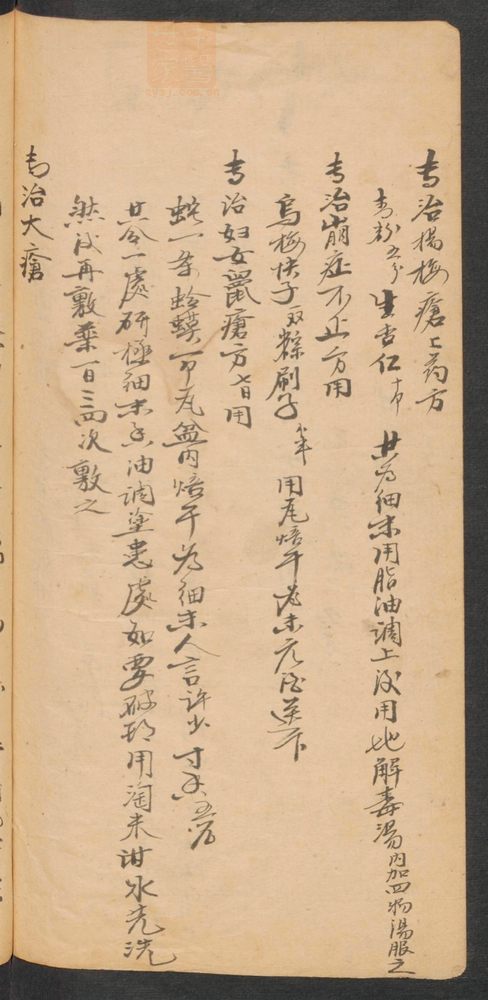 专治楊梅瘡上药方
青粉五分 生杏仁 共為细末用脂油调上後用 解毒湯内加四物湯服之
专治崩症不止方用
烏梅 双棕刷子 用瓦焙干為末 送下
专治妇女鼠瘡方 用
蛇一条 蛤蟆一个 瓦盆内焙干為细末人言许少 寸香五分
共合一處研極细末香油调塗患處如要破 用淘米泔水先洗
然後再敷藥一日三四次敷之
专治大瘡